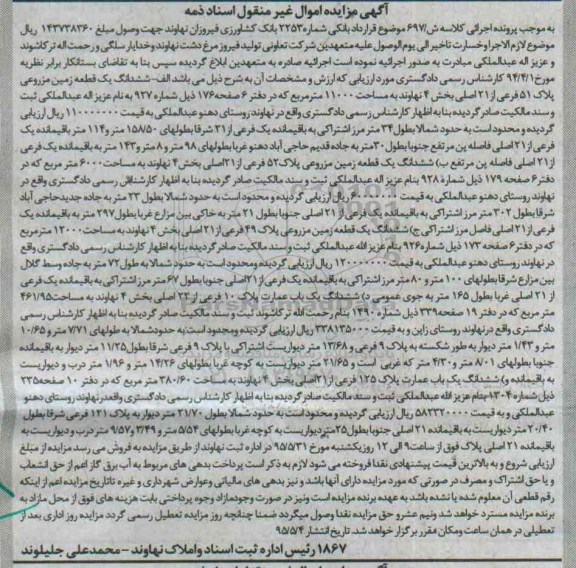 آگهی مزایده اموال غیر منقول اسناد ذمه
به موجب پرونده اجرائی کلاسه ش/۶۹۷ موضوع قرارداد بانکی شماره ۲۲۵۳ بانک کشاورزی فیروزان نهاوند جهت وصول مبلغ ۱۴۳۷۳۸۳۶۰ ریال
موضوع لازم الاجرا و خسارت تاخیر الی یوم الوصول علیه متعهدین شرکت تعاونی تولید فیروز مرغ دشت نهاوند و خدایار سلگی و رحمت اله ترکاشوند
و عزیز اله عبدالملکی مبادرت به صدور اجرائیه نموده است اجرائیه صادره به متعهدین ابلاغ گردیده سپس بنا به تقاضای بستانکار برابر نظریه
مورخ ۹۴/۴/۱ کارشناس رسمی دادگستری مورد ارزیابی که ارزش و مشخصات آن به شرح ذیل می باشد الف- ششدانگ یک قطعه زمین مزروعی
پلاک ۵۱ فرعی از ۲۱ اصلی بخش ۴ نهاوند به مساحت ۱۱۰۰۰ مترمربع که در دفتر ۶ صفحه ۱۷۶ ذیل شماره ۹۲۷ به نام عزیز اله عبدالملکی ثبت
و سند مالکیت صادر گردیده بنا به اظهار کارشناس رسمی دادگستری واقع در نهاوند روستای دهنو عبدالملکی به قیمت ۱۱۰۰۰۰۰۰۰ ریال ارزیابی
گردیده و محدود است به حدود شمالا بطول ۳۴ متر مرز اشتراکی به باقیمانده یک فرعی از ۳۱ شرقا بطولهای ۱۵۸/۵۰ متر و ۱۱۴ متر باقیمانده یک
فرعی از ۲۱ اصلی فاصله پن مرتفع جنوبا بطول ۳۰ متر به جاده قدیم حاجی آباد دهنو غربا بطولهای ۹۸ متر و ۸ متر و ۱۴۳ متر به باقیمانده یک فرعی
از ۲۱ اصلی فاصله پن مرتفع ب) ششدانگ یک قطعه زمین مزروعی پلاک ۵۲ فرعی از ۲۱ اصلی بخش ۴ نهاوند به مساحت ۶۰۰۰ متر مربع که در
دفتر ۶ صفحه ۱۷۹ ذیل شماره ۹۲۸ بنام عزیز اله عبدالملکی ثبت و سند مالکیت صادر گردیده بنا به اظهار کارشناس رسمی دادگستری واقع در
نهاوند روستای دهنو عبدالملکی به قیمت ریال ارزیابی گردیده و محدود است به حدود شمالا بطول ۲۳ متر به جاده جدید حاجی آباد
شرقا بطول ۳۰۲ متر مرز اشتراکی به باقیمانده یک فرعی از ۲۱ اصلی جنوبا بطول ۲۱ متر به خاکی بین مزارع غربا بطول ۲۹۷ متر به باقیمانده یک
فرعی از ۲۱ اصلی فاصل مرز اشتراکی ج) ششدانگ یک قطعه زمین مزروعی پلاک ۴۹ فرعی از ۲۱ اصلی بخش ۴ نهاوند به مساحت ۱۲۰۰۰ مترمربع
که در دفتر ۶ صفحه ۱۷۳ ذیل شماره ۹۲۶ بنام عزیز الله عبدالملکی ثبت و سند مالکیت صادر گردیده بنا به اظهار کارشناس رسمی دادگستری واقع
در نهاوند روستای دهنو عبدالملکی به قیمت ۱۲۰۰۰۰۰۰۰ ریال ارزیابی گردیده و محدود است به حدود شمالا به طول ۷۲ متر به جاده وسط گلال
بین مزارع شرقا بطولهای ۱۰۰ متر و ۸۰ متر مرز اشتراکی به باقیمانده یک فرعی از ۲۱ اصلی جنوبا بطول ۶۷ متر مرز اشتراکی به باقیمانده یک فرعی
از ۲۱ اصلی غربا بطول ۱۶۵ متر به جوی عمومی د) ششدانگ یک باب عمارت پلاک ۱۰ فرعی از ۲۲ اصلی بخش ۴ نهاوند به مساحت ۴۶۱/۹۵
متر مربع که در دفتر ۱۹ صفحه ۳۳۹ ذیل شماره ۱۴۹۰ بنام رحمت الله ترکاشوند ثبت و سند مالکیت صادر گردیده بنا به اظهار کارشناس رسمی
دادگستری واقع در نهاوند روستای زاین و به قیمت ۳۳۸۱۳۵۰۰۰ ریال ارزیابی گردیده و محدود است به حدود شمالا به طولهای ۷/۷۱ متر و ۱۰/۶۵
متر و ۱/۴۳ متر دیوار به طور شکسته به پلاک ۹ فرعی و ۱۳/۶۸ متر دیواریست اشتراکی با پلاک ۹ فرعی شرقا بطول ۱۱/۲۵ متر دیوار به باقیمانده
جنوبا بطولهای ۸/۰۱ متر و ۴/۳۰ متر که غربی است و ۲۱/۶۵ متر دیواریست به کوچه غربا بطولهای ۱۴/۲۶ متر و ۱/۹۶ متر درب و دیواریست
به باقیمانده و) ششدانگ یک باب عمارت پلاک ۱۲۵ فرعی از ۲۱ اصلی بخش ۴ نهاوند به مساحت ۳۸۰/۶۰ متر مربع که در دفتر ۱۰ صفحه ۲۳۵
ذیل شماره ۱۳۰۴ بنام عزیز الله عبدالملکی ثبت و سند مالکیت صادر گردیده بنا به اظهار کارشناس رسمی دادگستری واقعدر نهاوند روستای دهنو
عبدالملکی و به قیمت ۵۸۲۳۲۰۰۰۰ ریال ارزیابی گردیده و محدود است به حدود شمالا بطول ۲۱/۷۰ متر دیوار به پلاک ۱۲۱ فرعی شرقا بطول
۲۰/۴۰ متر دیواریست به باقیمانده ۲۱ اصلی جنوبا بطول ۲۵ متر دیواریست به کوچه غربا بطولهای ۵/۵۴ متر و ۳/۴۹ و ۹/۵۷ متر درب و دیواریست به
باقیمانده ۲۱ اصلی پلاک فوق از ساعت ۹ الی ۱۲ روز یکشنبه مورخ ۹۵/۵/۳۱ در اداره ثبت نهاوند از طریق مزایده به فروش می رسد مزایده از مبلغ
ارزیابی شروع و به بالاترین قیمت پیشنهادی نقدا فروخته می شود لازم به ذکر است پرداخت بدهی های مربوط به آب برق گاز اعم از حق انشعاب
و یا حق اشتراک و مصرف در صورتی که مورد مزایده دارای آنها باشد و نیز بدهی های مالیاتی و عوارض شهرداری و غیره تا تاریخ مزایده اعم از اینکه
رقم قطعی آن معلوم شده یا نشده باشد به عهده برنده مزایده است و نیز در صورت وجود مازاد وجوه پرداختی بابت هزینه های فوق از محل مازاد به
برنده مزایده مسترد خواهد شد ونیم عشر و حق مزایده نقدا وصول میگردد ضمنا چنانچه روز مزایده تعطیل رسمی گردد مزایده روز اداری بعد از
تعطیلی در همان ساعت و مکان مقرر برگزار خواهد شد. تاریخ انتشار ۹۵/۵/۴
۱۸۶۷ رئیس اداره ثبت اسناد و املاک نهاوند - محمدعلی جلیلوند